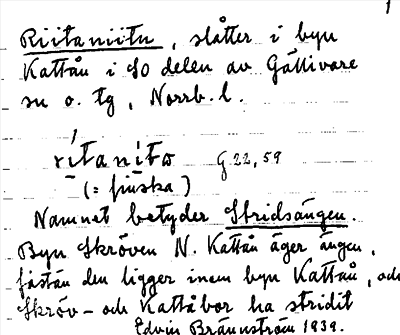 1
Riitaniitu, slåtter i byn
Kattån i SO delen av Gällivare
sn o. tg, Norrb. l.
rítaníto G 22, 59
(= finska)
Namnet betyder Stridsängen.
Byn Skröven N. Kattån äger ängen,
fastän den ligger inom byn Kattån, och
Skröv- och Kattåbor ha stridit
Edvin Brännström 1939.